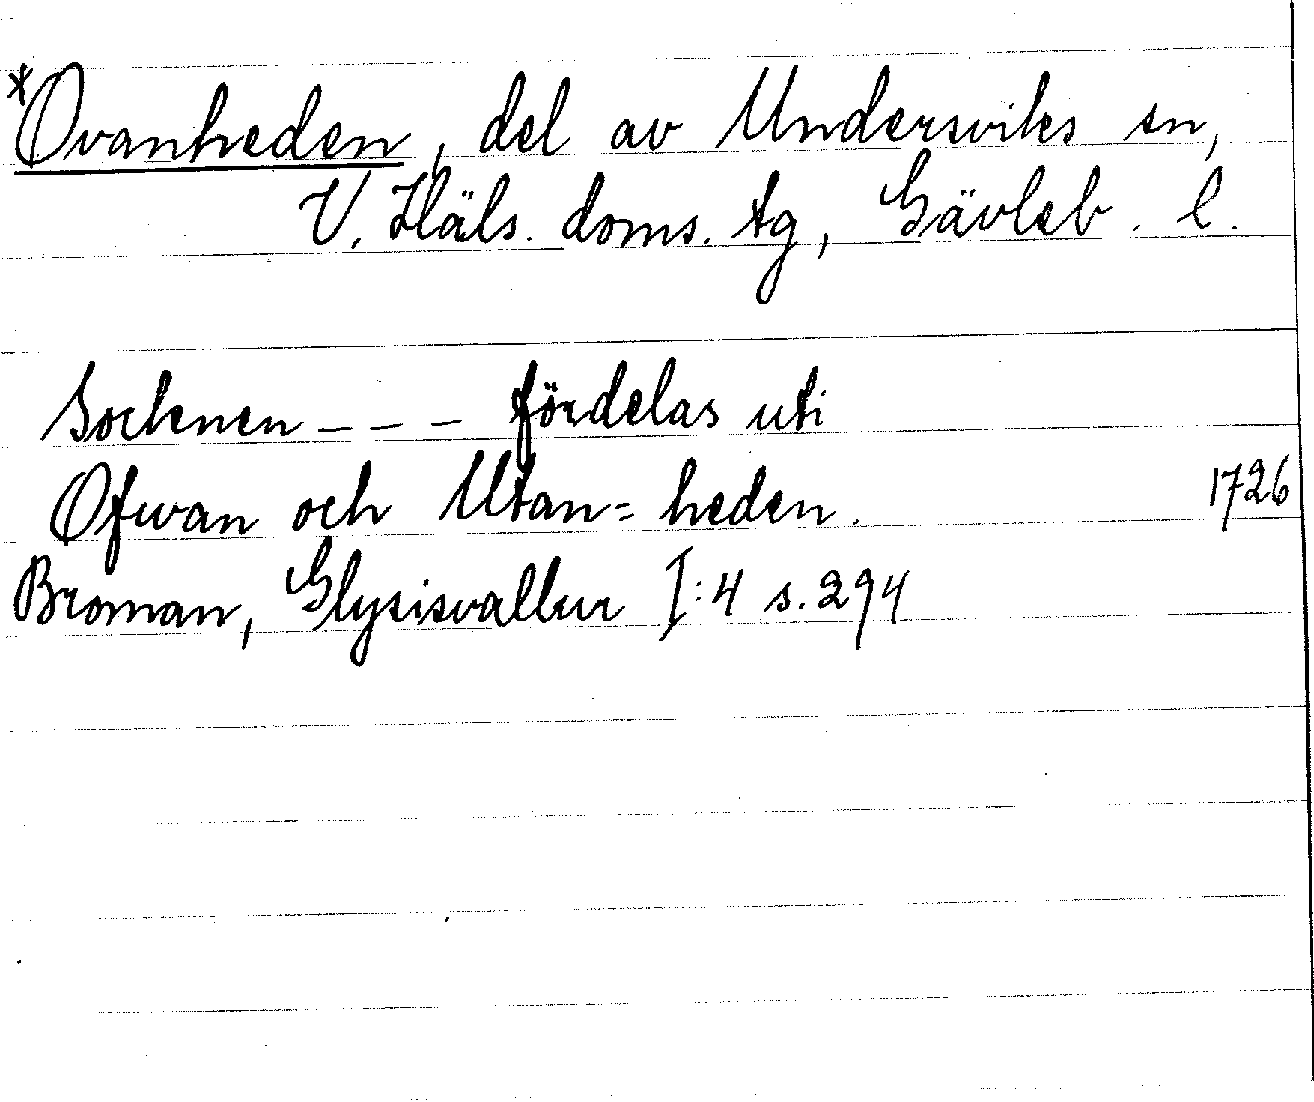 *Ovanheden, del av Undersviks sn,
V. Häls. doms. tg, Gävleb. l.
Sochenen - - - fördelas uti
Ofwan och Utan= heden. 1726
Broman, Glysisvallur I:4 s. 294